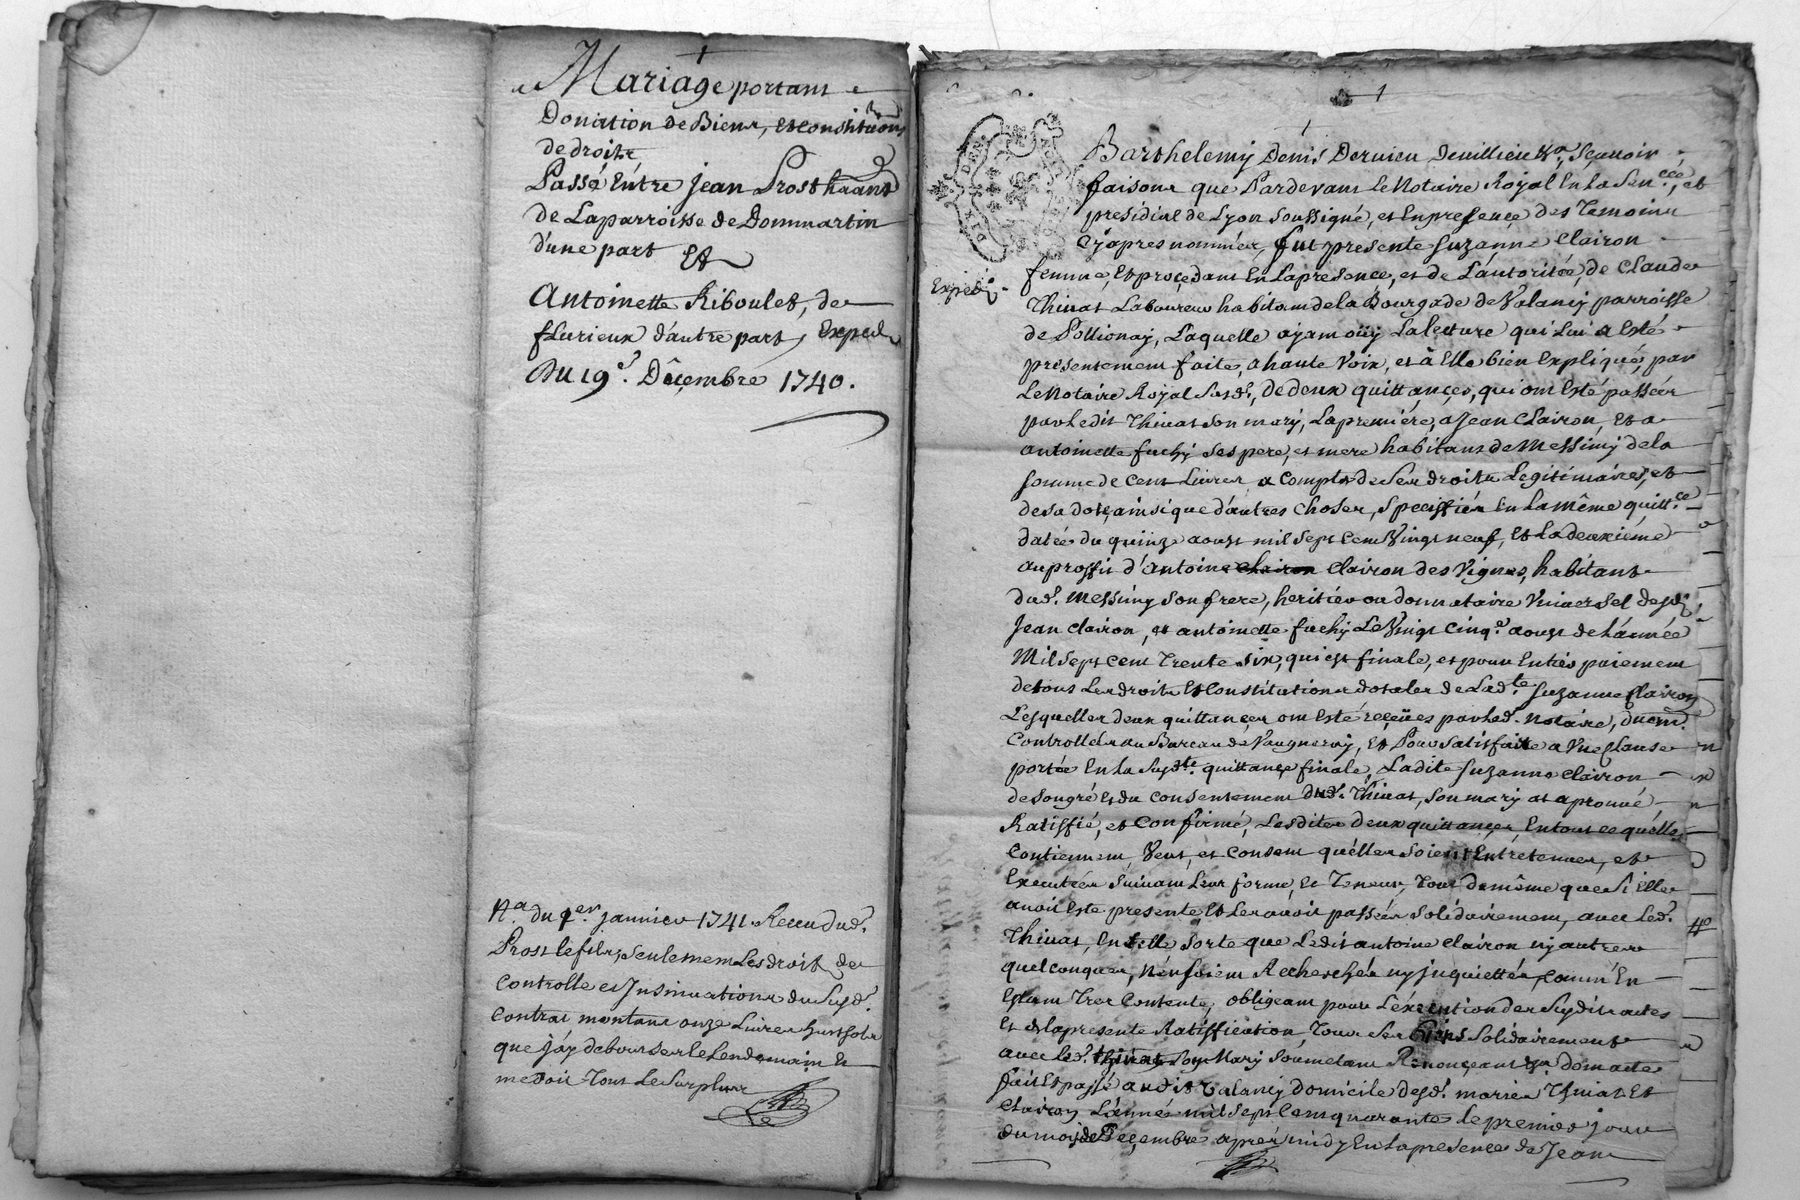 Mariage portant
Donation de Biens, et constitu͠ons
de droits,
Passé Entre Jean Prost
de Laparroisse de Dommartin
d'une part Et
Antoinette Riboulet, de
flurieux d'autre part, Exped.
Du 19e. Décembre 1740.
Na. du 1er. janvier 1741. Receu dud.
Prost le fils, seulement Les droits de
Controlle et Insinuations du Susd.
Contrat montant onze Livres huit sols
que J'ay debourser le Lendemain Et
me doit Tout le Surplus
1
Barthelemy Denis Dervieu Devillieu &a. Sçavoir
faisons que Pardevant Le Notaire Royal En la Sen.cée, et
presidial de Lyon soussigné, et En presence des Temoins
Cy apres nommés, fut presente Suzanne Clairon
femme, Et procedant En La presence, et de L'autoritée, de Claude
Expédié
Thivat Laboureur habitant de la Bourgade de Valancy parroisse
de Pollionay, Laquelle ayant oüy La lecture qui Lui a Esté
presentement faite, a haute Voix, et à Elle bien Expliqué, par
Le Notaire Royal Susd., de deux quittances, qui ont Esté passées
par Ledit Thivat son mary, La premiére, a Jean Clairon, Et a
antoinette fuchy ses pere, et mere habitans de Messimy de la
somme de Cent Livres a Compte de Ses droits Legitimaires, et
de sa dot, ainsi que d'autres Choses, Speciffiés En La même quitt.ce
datée du quinze aoust mil sept Cent Vingt neuf, Et La deuxiéme
au proffit d'antoine Clairon des Vignes, habitant
dud. Messimy son frere, heritier ou donnataire Universel desd.
Jean Clairon, et antoinette fuchy Le Vingt Cinq.e aoust de L'année
Mil Sept Cent Trente Six, qui est finale, et pour Entier paiement
de tous Les droits Et Constitutions dotales de Lad.te Suzanne Clairon
Lesquelles deux quittances ont Esté receües par Led. Notaire, duëm.
Controllées au Bureau de Vaugneray, Et Pour Satisfaire a Une Clause
portée En la Susd.te quittance finale, Ladite Suzanne Clairon
de son gré Et du Consentement dud. Thivat, son mary at aprouvé
Ratiffié, et Confirmé, Lesdites deux quittances, En tout ce quélles
Contiennent, Veut, et Consent quélles Soient Entretenues, et
Executées Suivant Leur forme, Et Teneur, Tout de même que Si Elle
avoit Esté presente, Et Les avoir passées Solidairement, avec Led.
Thivat, En telle Sorte que Ledit antoine Clairon ny autres
quelconques, n'en soient Recherchés ny jnquiettés, Comm' En
Estant Tres Contente, obligeant pour L'éxecution des Susdits actes
Et de la presente Ratiffication, Tous Ses Biens Solidairement
avec Led. Thivat son Mary Soumettant Renonceant &a. dont acte
fait Et passé audit Valancy domicile desd. mariés Thivat Et
Clairon L'année mil Sept Cent quarante Le premier jour
du mois de Décembre apres midy En la presence de Jean